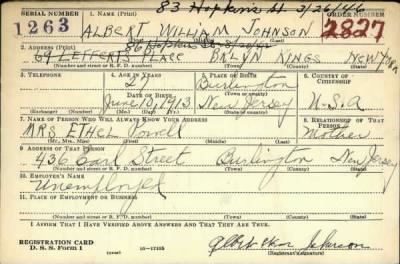 83 Hopkins St 3/26/46
SERIAL NUMBER 1. NAME (Print) ORDER NUMBER
1263 ALBERT WILLIAM JOHNSON 2827
(First) (Middle) (Last)
2. ADDRESS (Print)
64 LEFFERTS PLACE BKLYN KINGS NEW YORK
(Number and street or R. F. D. number) (Town) (County) (State)
3. TELEPHONE 4. AGE IN YEARS 5. PLACE OF BIRTH 6. COUNTRY OF CITIZENSHIP
27 Burlington
DATE OF BIRTH (Town or county)
June 10, 1913 New Jersey U.S.A
(Exchange) (Number) (Mo.) (Day) (Yr.) (State or country)
7. NAME OF PERSON WHO WILL ALWAYS KNOW YOUR ADDRESS 8. RELATIONSHIP OF THAT PERSON
MRS ETHEL Powell Mother
(Mr., Mrs., Miss) (First) (Middle) (Last)
9. ADDRESS OF THAT PERSON
436 Earl Street Burlington New Jersey
(Number and street or R. F. D. number) (Town) (County) (State)
10. EMPLOYER'S NAME
Unemployed
11. PLACE OF EMPLOYMENT OR BUSINESS
(Number and street or R. F. D. number) (Town) (County) (State)
I AFFIRM THAT I HAVE VERIFIED ABOVE ANSWERS AND THAT THEY ARE TRUE.
REGISTRATION CARD
D. S. S. Form 1 16-17105 Johnson
(Registrant's signature)